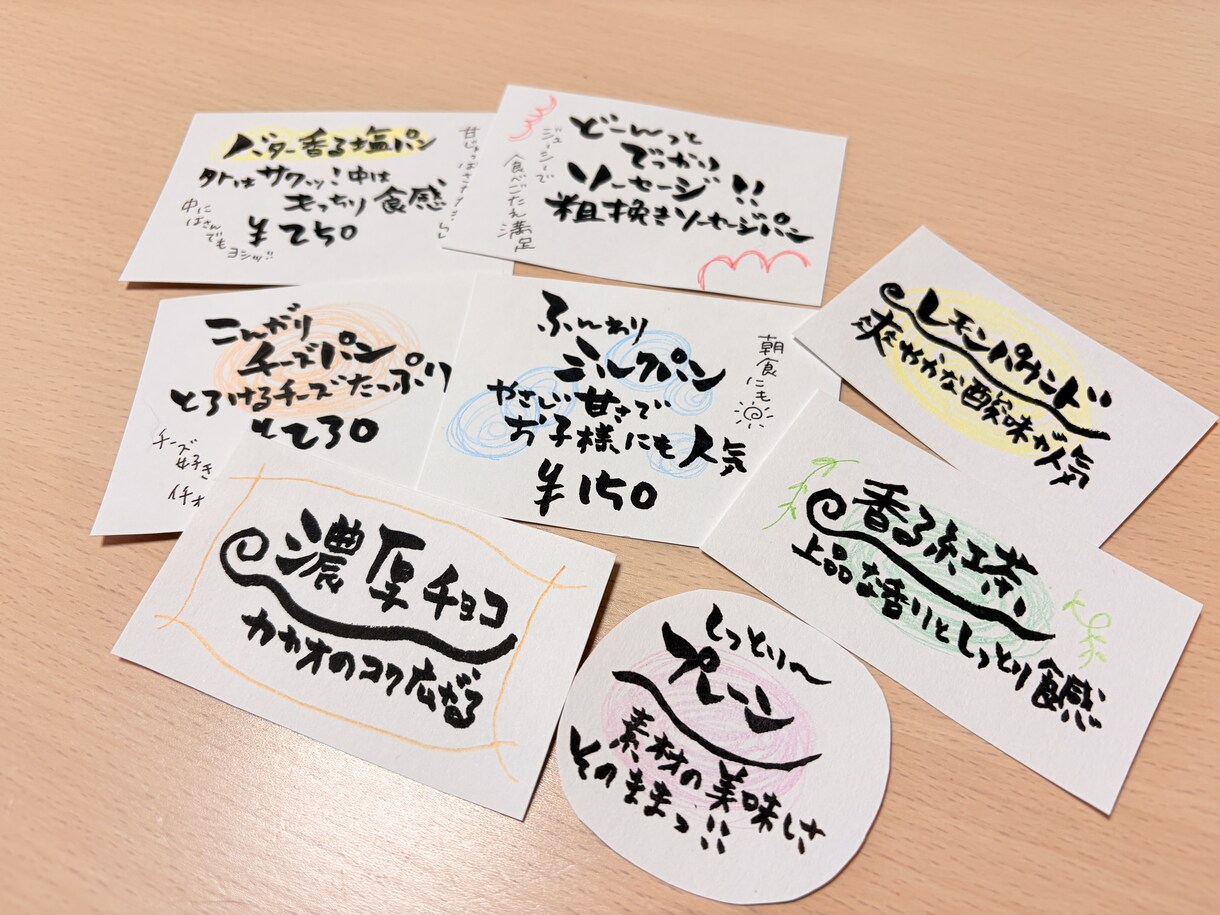 バター香る塩パン
外はサクッ！中は
もっちり食感
¥250
中に
はさんでも
ヨシッ!!
どーんっと
でっかり
ソーセージ!!
粗挽きソーセージパン
ジューシーで
食べごたえ満足
こんがり
チーズパン
とろけるチーズたっぷり
¥230
チーズ
好き
イチオ
ふんわり
ミルクパン
やさしい甘さで
お子様にも人気
¥150
朝食にも
レモンパウンド
爽やかな酸味が人気
香る紅茶
上品な香りとしっとり食感
濃厚チョコ
カカオのコク広がる
しっとり〜
プレーン
素材の美味しさ
そのままっ!!